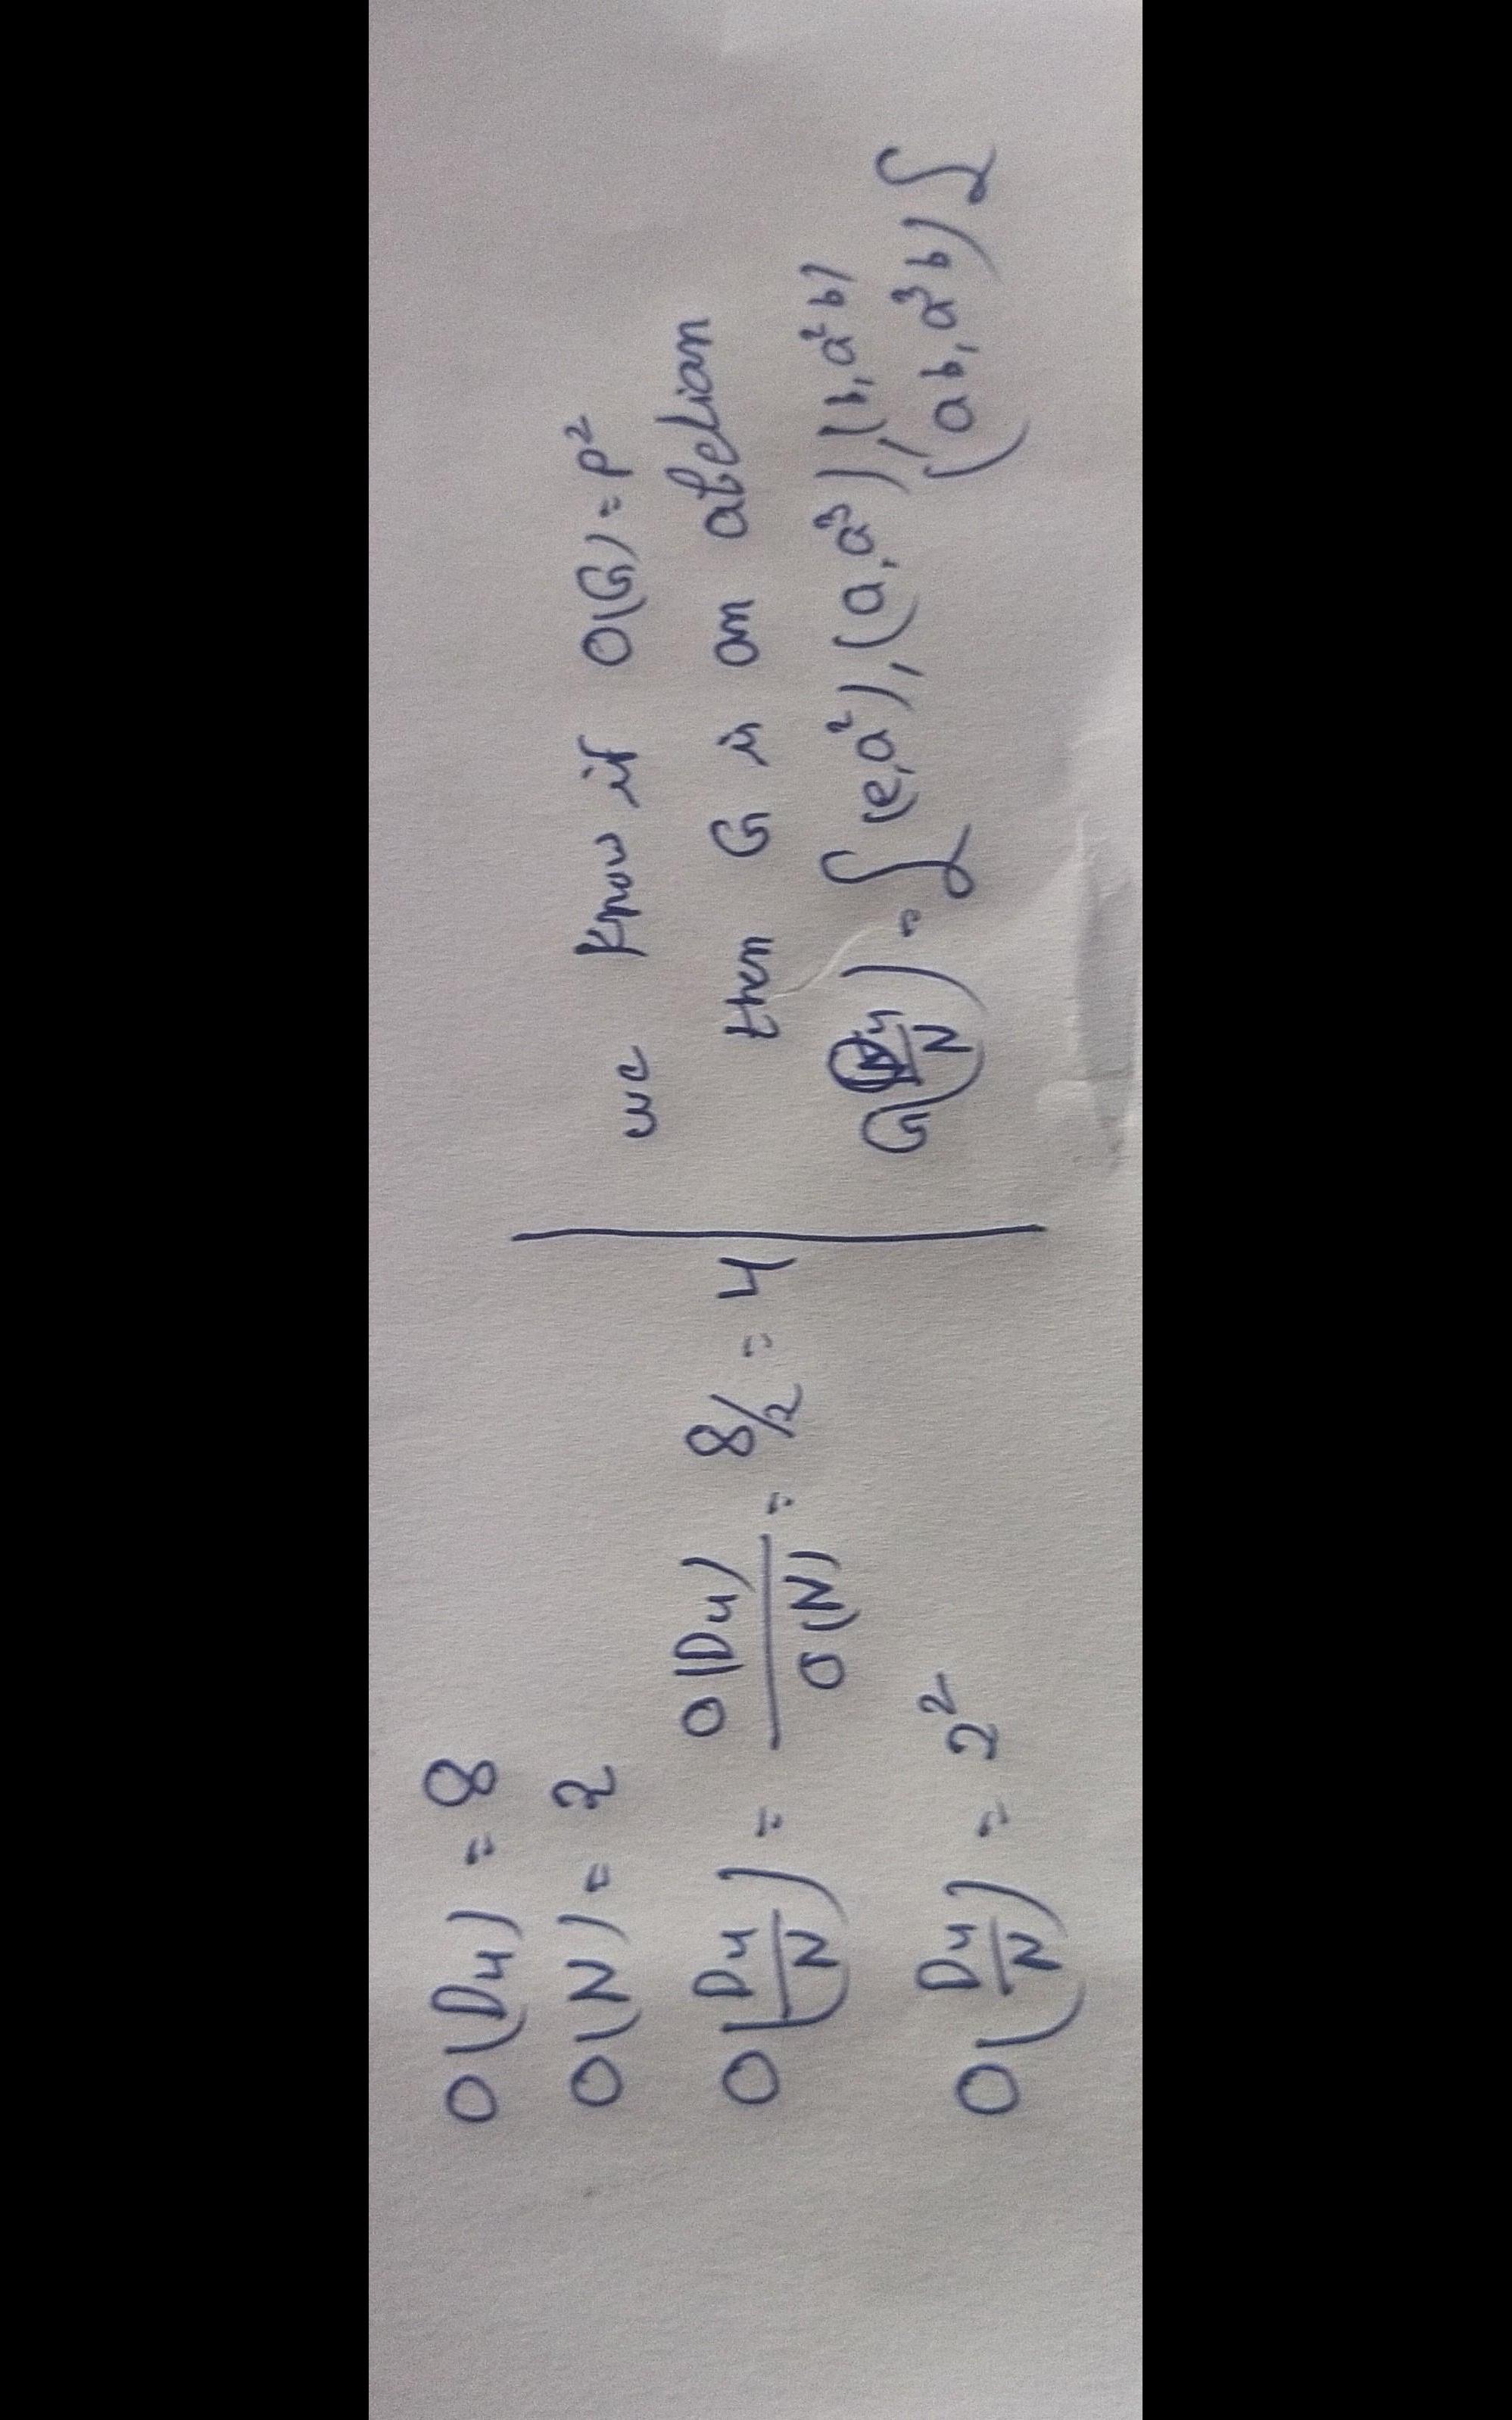 O(D4) = 8
O(N) = 2
O(D4/N) = O(D4)/O(N) = 8/2 = 4
O(D4/N) = 2²
we know if O(G) = p²
then G is an abelian
G(D4/N) = { (e, a²), (a, a³), (b, a²b)
, (ab, a³b) }